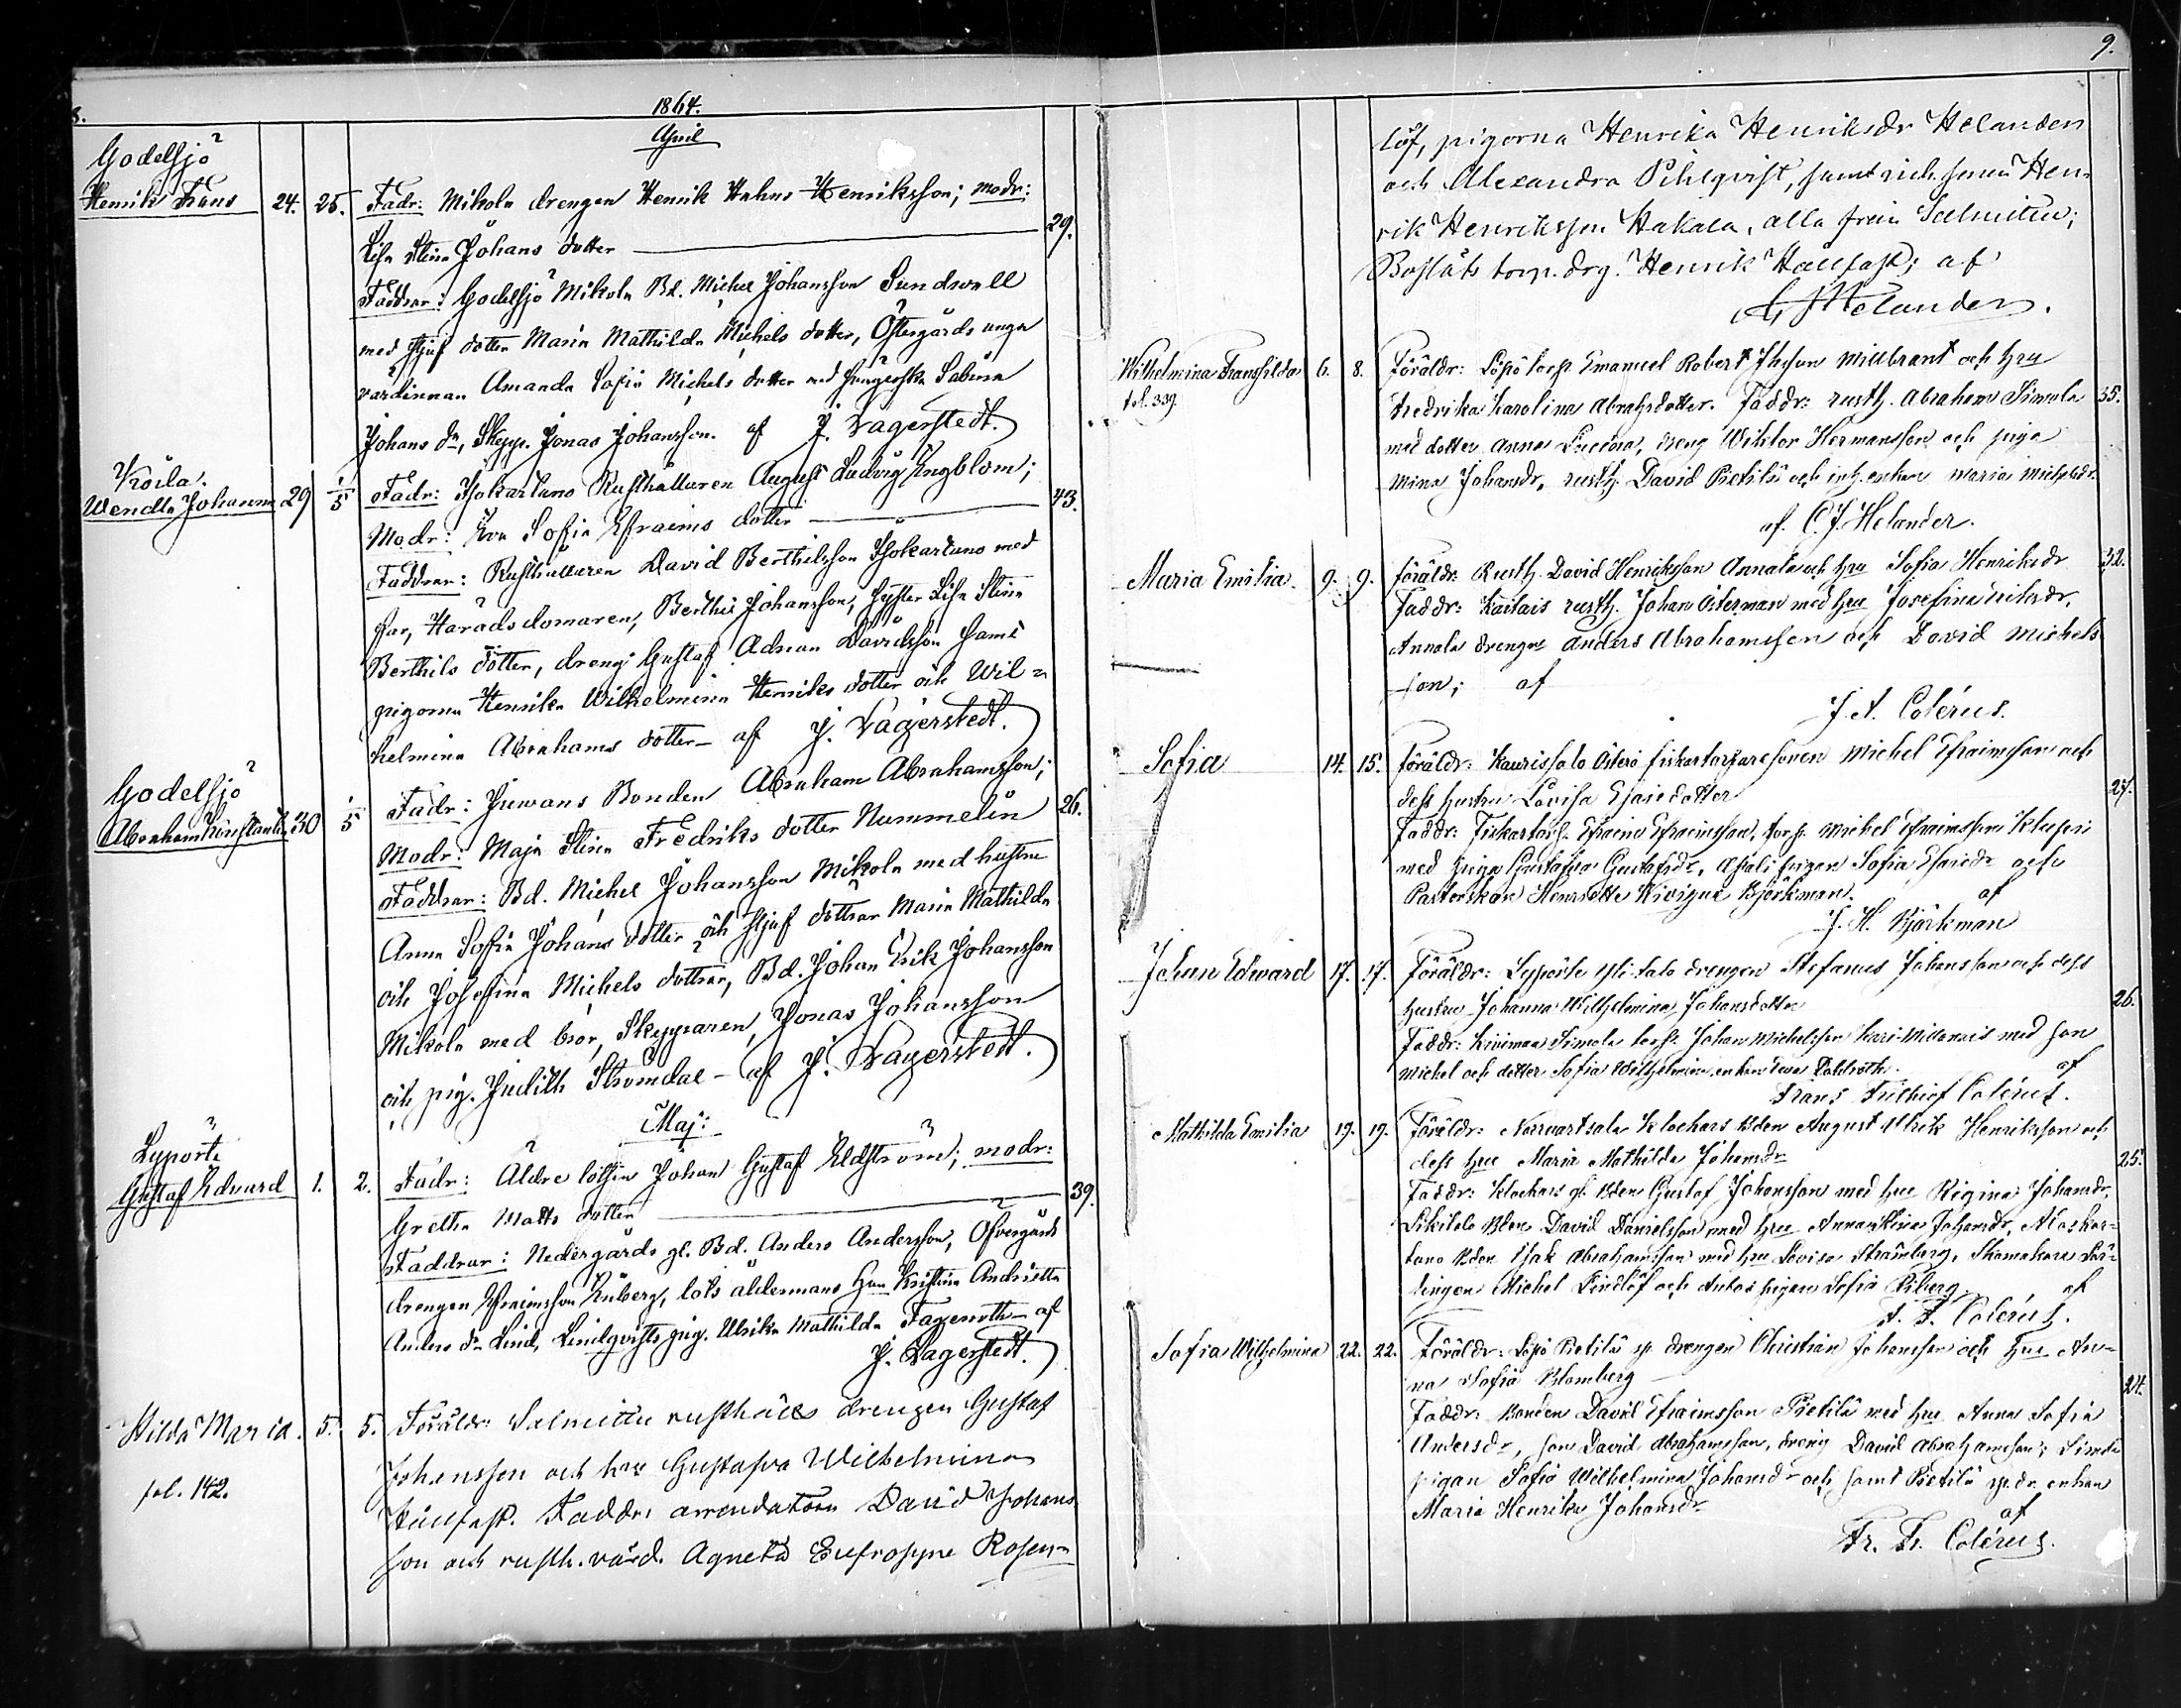 8.
1864.
April
Godelsjö
Henrik Frans 24. 25. Fadr: Mikola drengen Henrik Hahns Henriksson; modr:
Lisa Stina Johans dotter 29.
Faddrar: Godelsjö Mikola Bd. Michel Johansson Sundwall
med stjuf dotter Maria Mathilda Michels dotter, Östergårds unga
värdinnan Amanda Sofia Michels dotter med Sabina
Johans dr, Skepp. Jonas Johansson. af J. Lagerstedt.
Koila.
Wendla Johanna 29 1/5 Fadr: Isokartano Rusthållaren August Ludvig Engblom;
Modr: Eva Sofia Efraims dotter 43.
Faddrar: Rusthållaren David Berthilsson Isokartano med
far, Häradsdomaren, Berthil Johansson, syster Lisa Stina
Berthils dotter, dreng: Gustaf Adrian Davidsson samt
pigorna Henrika Wilhelmina Henriks dotter och Wil=
helmina Abrahams dotter – af J. Lagerstedt.
Godelsjö
Abraham Konstantin 30 1/5 Fadr: Juwans Bonden Abraham Abrahamsson;
Modr: Maja Stina Fredriks dotter Nummelin 26.
Faddrar: Bd. Michel Johansson Mikola med hustru
Anna Sofia Johans dotter och stjuf döttrar Maria Mathilda
och Josefina Michels döttrar, Bd. Johan Erik Johansson
Mikola med bror, Skepparen, Jonas Johansson
och pig. Judith Strömdal – af J. Lagerstedt.
Maj:
Lypörti
Gustaf Edvard 1. 2. Fadr: Äldre lotsen Johan Gustaf Eldström; modr:
Gretha Matts dotter 39.
Faddrar: Nedergårds gl. Bd. Anders Andersson, Öfvergårds
drengen Efraimsson Enberg, lots åldermans hru Kristina Andrietta
Anders dr Lind, Lindqvists pig. Ulrika Mathilda Fagerroth – af
J. Lagerstedt.
Hilda Maria. 5. 5. Föräldr: Salmittu rusthålls drengen Gustaf
fol. 142.
Johansson och hru Gustafva Wilhelmina
Hällfast. Faddr: arrendatorn David Johans
son och rusth. värd. Agneta Eufrosyne Rosen=
9.
löf, pigorna Henrika Henriksdr Helander
och Alexandra Pihlqvist, samt Hen
rik Henriksson Hakala, alla från Salmittu;
Bosläts torp. drg. Henrik Hällfast; af
C. J. Helander.
Wilhelmina Transfilda 6. 8. Föräldr: Löpö torp. Emanuel Robert Willbrant och hru
fol. 339.
Fredrika Karolina Abrahsdotter. Faddr: rusth. Abraham Simola 35.
med dotter Anna Lucina, dreng Wiktor Hermansson och piga
Mina Johansdr, rusth. David Pietilä och inh. enkan Maria Michelsdr.
af. C. J. Helander.
Maria Emilia. 9. 9. Föräldr: Rusth. David Henriksson Annala och hru Sofia Henriksdr 32.
Faddr: Kaitais rusth. Johan Österman med hru Josefina Eriksdr,
Annala drengar Anders Abrahamsson och David Michels
son; af
J. A. Colérus.
Sofia 14. 15. Föräldr: Kaurissalo Österö fiskartorparesonen Michel Efraimsson och
dess hustru Lovisa Esaiedotter 27.
Faddr: Fiskartorp. Efraim Efraimsson, torp. Michel Efraimsson
med piga Gustafva Gustafsdr, pigan Sofia Esaiedr och
Pastorskan Henriette Björkman. af
J. H. Björkman
Johan Edward 17. 17. Föräldr: Lypörte drengen Stefanus Johansson och dess
hustru Johanna Wilhelmina Johansdotter 26.
Faddr: Kivimaa Simola torp. Johan Michelsson med son
Michel och dotter Sofia Wilhelmina, enkan Eva Dahlroth. af
Frans Frithiof Colérus.
Mathilda Emilia 19. 19. Föräldr: Klockars Bden August Ulrik Henriksson och
dess hru Maria Mathilda Johansdr 25.
Faddr: Klockars gl. Bden Gustaf Johansson med hru Regina Johansdr,
Sikilä Bden David Danielsson med hru Anna Stina Johansdr, Alaskar=
tano Bden Isak Abrahamsson med hru Lovisa Strömberg, Skomakare Lär=
lingen Michel Lindlöf och pigan Sofia af
F. F. Colérus.
Sofia Wilhelmina 22. 22. Föräldr: Löpö Pietilä sp. drengen Christian Johansson och hru An=
na Sofia Blomberg 24.
Faddr: Bonden David Efraimsson Pietilä med hru Anna Sofia
Andersdr, son David Abrahamsson, dreng David Abrahamsson; Simola
pigan Sofia Wilhelmina Johansdr och samt Pietilä sp. dr. enkan
Maria Henrika Johansdr af
Fr. Fr. Colérus.